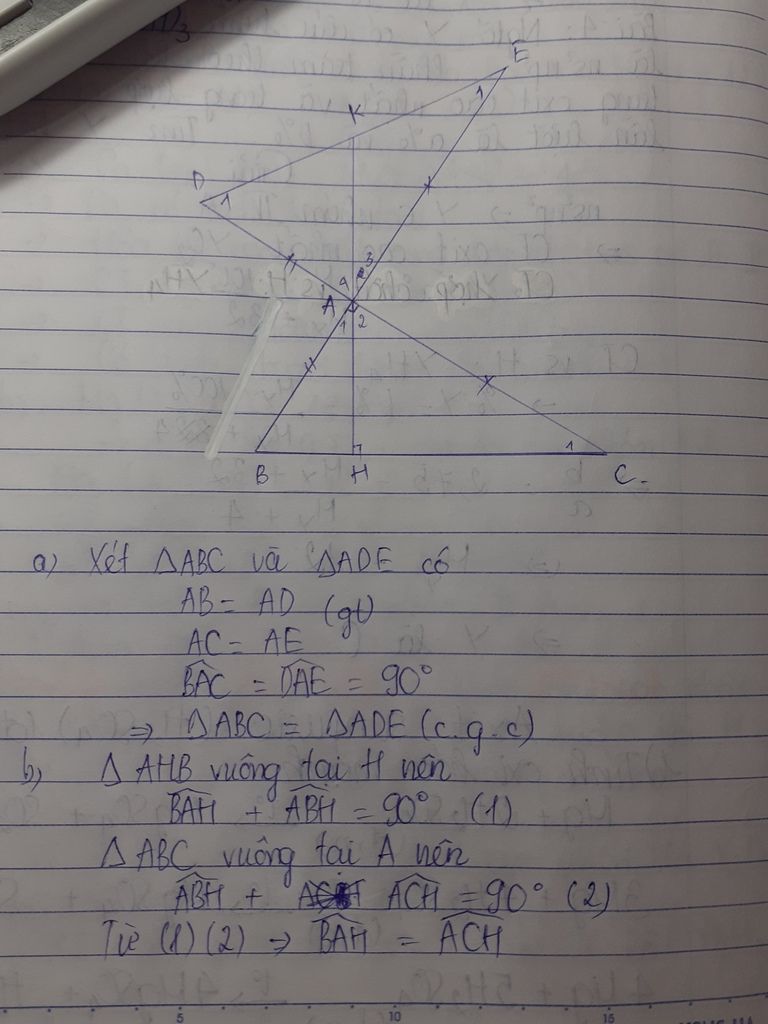 E
1
K
D
1
4
3
A
1
2
1
B
H
C.
a) Xét △ABC và △ADE có
AB = AD (gt)
AC = AE
BAC = DAE = 90°
⇒ △ABC = △ADE (c.g.c)
b, △AHB vuông tại H nên
BAH + ABH = 90° (1)
△ABC vuông tại A nên
ABH + ACH = 90° (2)
Từ (1) (2) ⇒ BAH = ACH
5 10 15